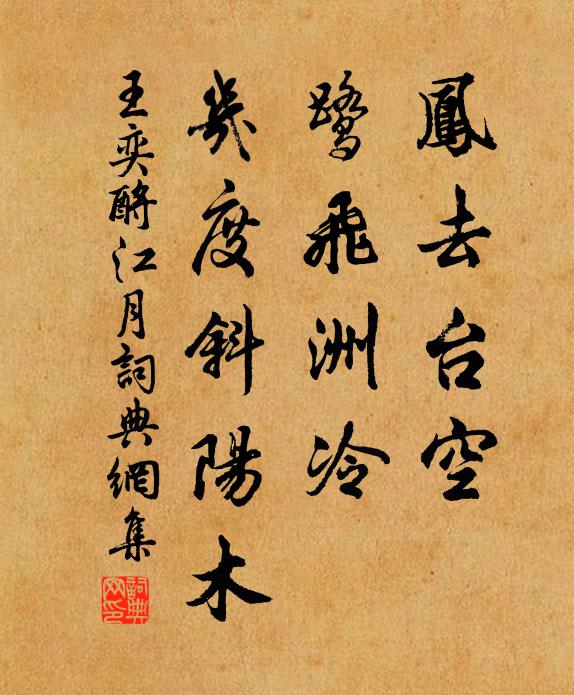 鳳去台空
鹭飛洲冷
幾度斜陽木
王奕酹江月詞典網集
詞典網印